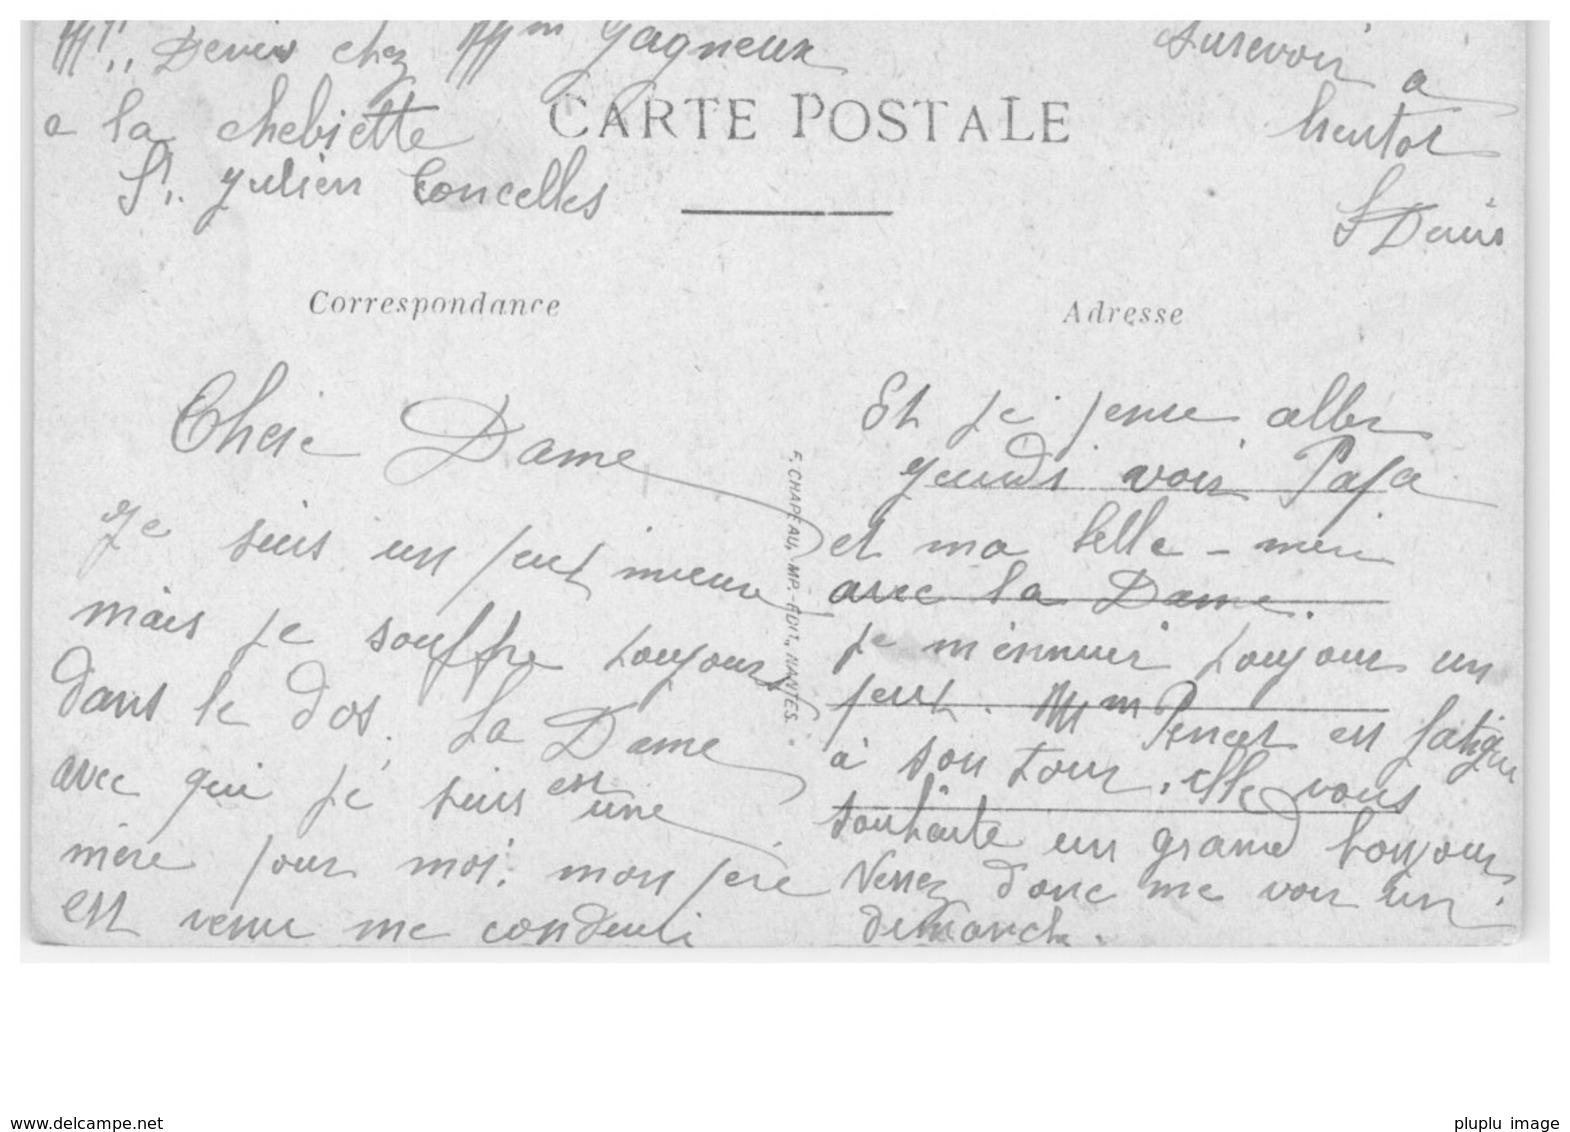 Denis chez Mme Gagneux
a la chebiette
St. Julien Concelles
aurevoir a
bientot
S Denis
CARTE POSTALE
Correspondance
Adresse
Chere Dame
Je suis un peut mieux
mais je souffre toujours
dans le dos. La Dame
avec qui je suis est une
mère pour moi. mon pere
est venu me conduui
F. CHAPEAU, IMP.-EDIT., NANTES.
Et je pense aller
jeudi voir Papa
et ma belle-mere
avec la Dame.
je m'ennuie toujours un
peut. Mm est fatigue
à son tour, elle vous
souhaite un grand bonjour.
Venez donc me voir un
dimanche.
pluplu image
www.delcampe.net